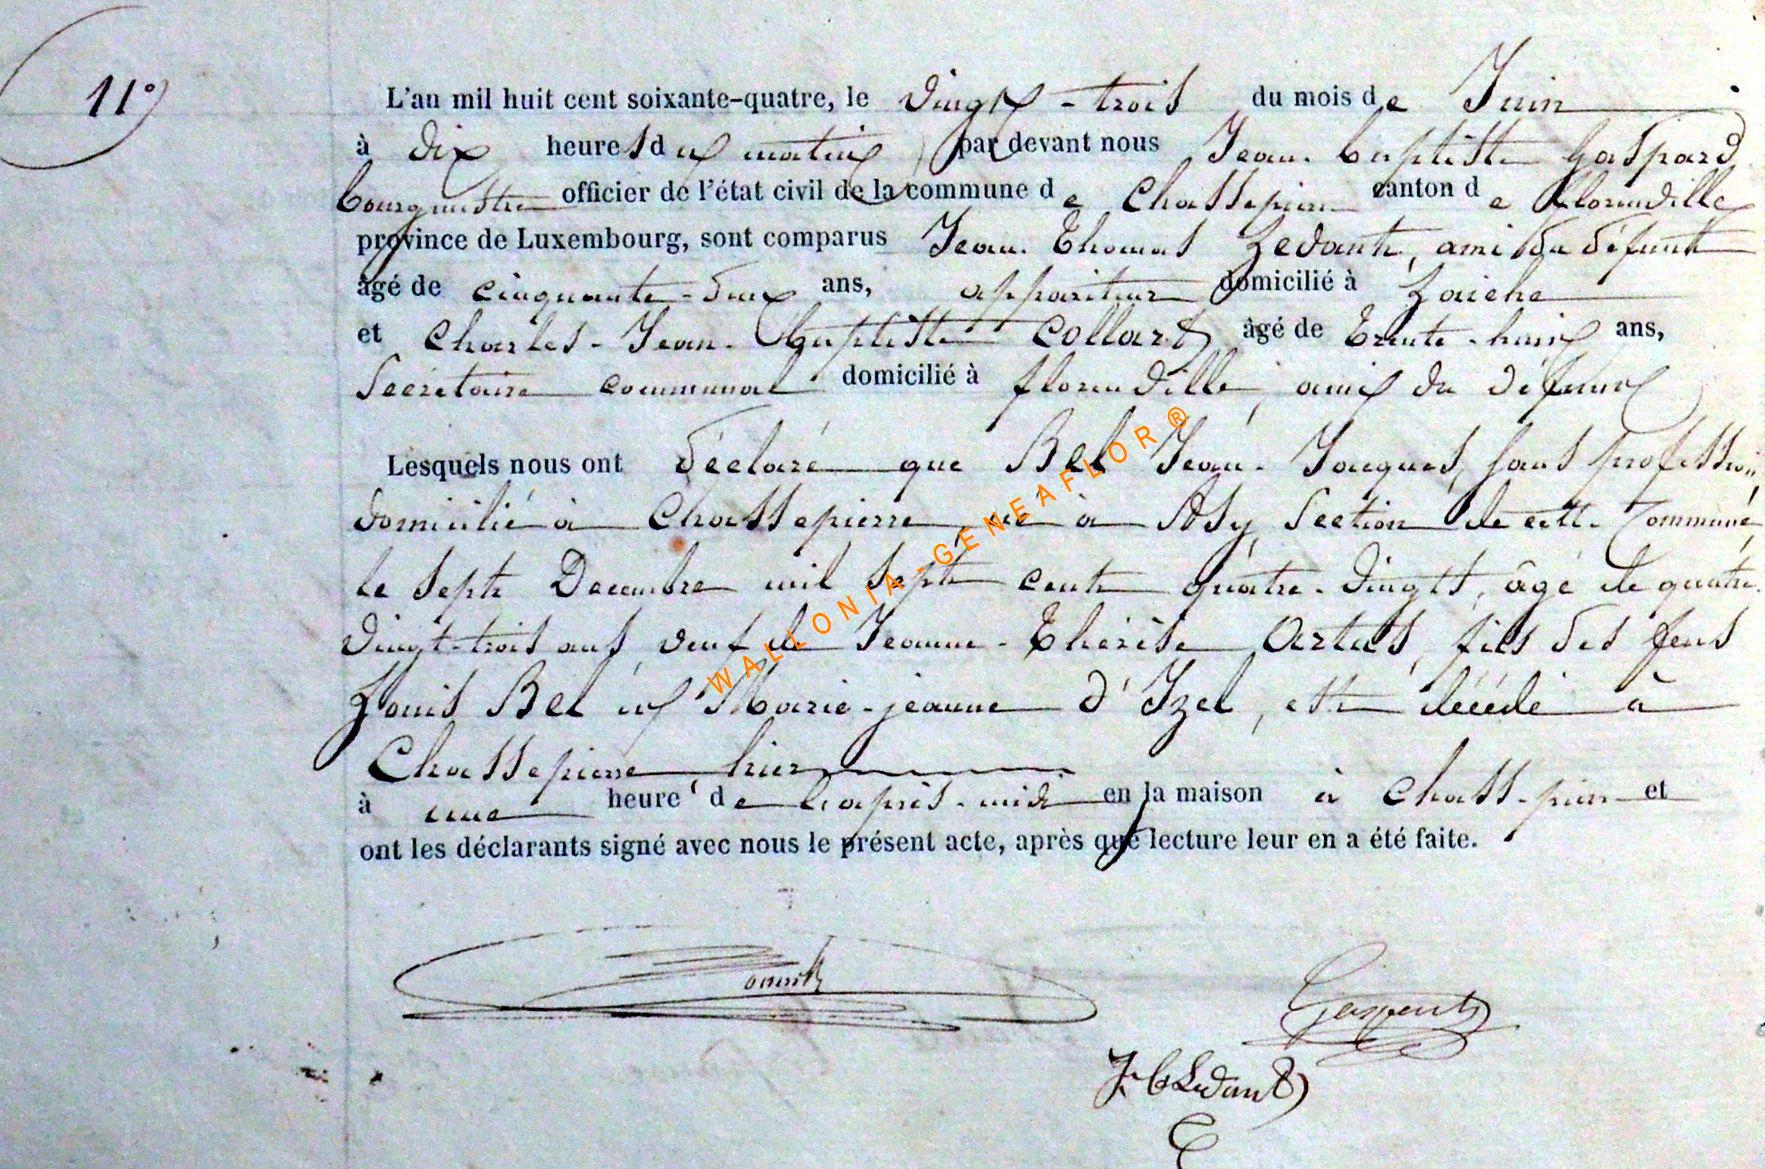 11°
L'an mil huit cent soixante-quatre, le vingt-trois du mois de Juin
à dix heures du matin par devant nous Jean-Baptiste Gaspard,
bourgmestre officier de l'état civil de la commune de Chassepierre canton de Florenville
province de Luxembourg, sont comparus Jean Thomas Ledant, ami du défunt
âgé de cinquante-deux ans, appariteur domicilié à Laiche
et Charles-Jean-Baptiste Collard âgé de trente-huit ans,
Secrétaire communal domicilié à florenville, ami du défunt
Lesquels nous ont déclaré que Bel Jean-Jacques, sans profession,
domicilié à Chassepierre, né à Azy, Section de cette Commune,
le sept Decembre mil sept cent quatre-vingts, âgé de quatre-
vingt-trois ans, veuf de Jeanne-Thérèse Artus, fils des feus
Louis Bel et Marie-jeanne d'Izel, est décédé à
Chassepierre hier
à une heure de l'après-midi en la maison à Chassepierre et
ont les déclarants signé avec nous le présent acte, après que lecture leur en a été faite.
Gaspard
Ledant
WALLONIA-GENEAFLOR®